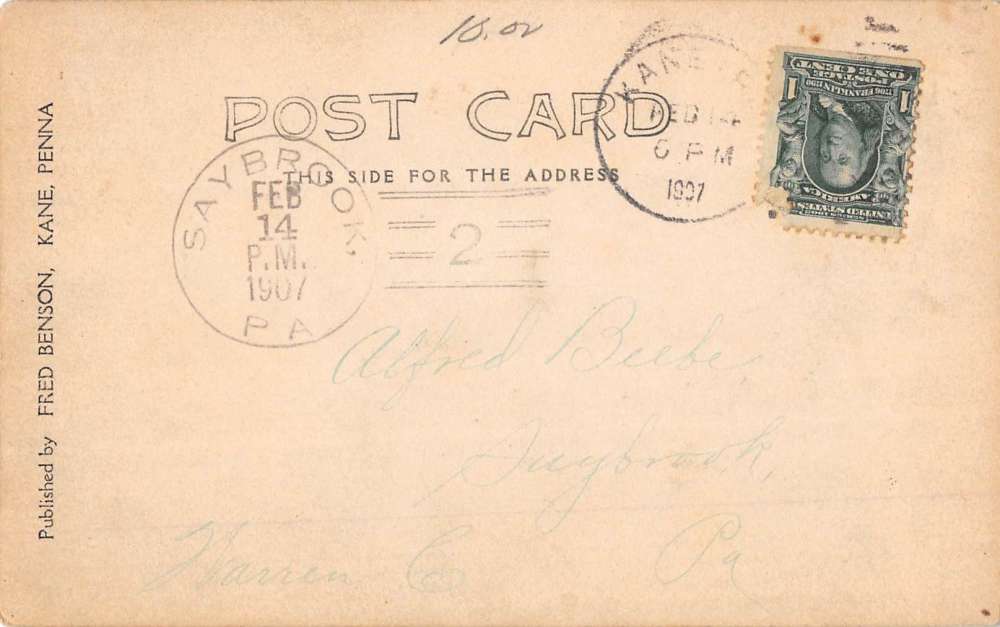 10.00
POST CARD
THIS SIDE FOR THE ADDRESS
KANE
FEB 14
6 PM
1907
ONE CENT
POSTAGE
1706 FRANKLIN 1790
1 1
AMERICA
UNITED STATES OF
SERIES 1902
SAYBROOK,
FEB
14
P.M.
1907
PA
2
Alfred Beebe
Saybrook,
Warren Co Pa
Published by FRED BENSON, KANE, PENNA